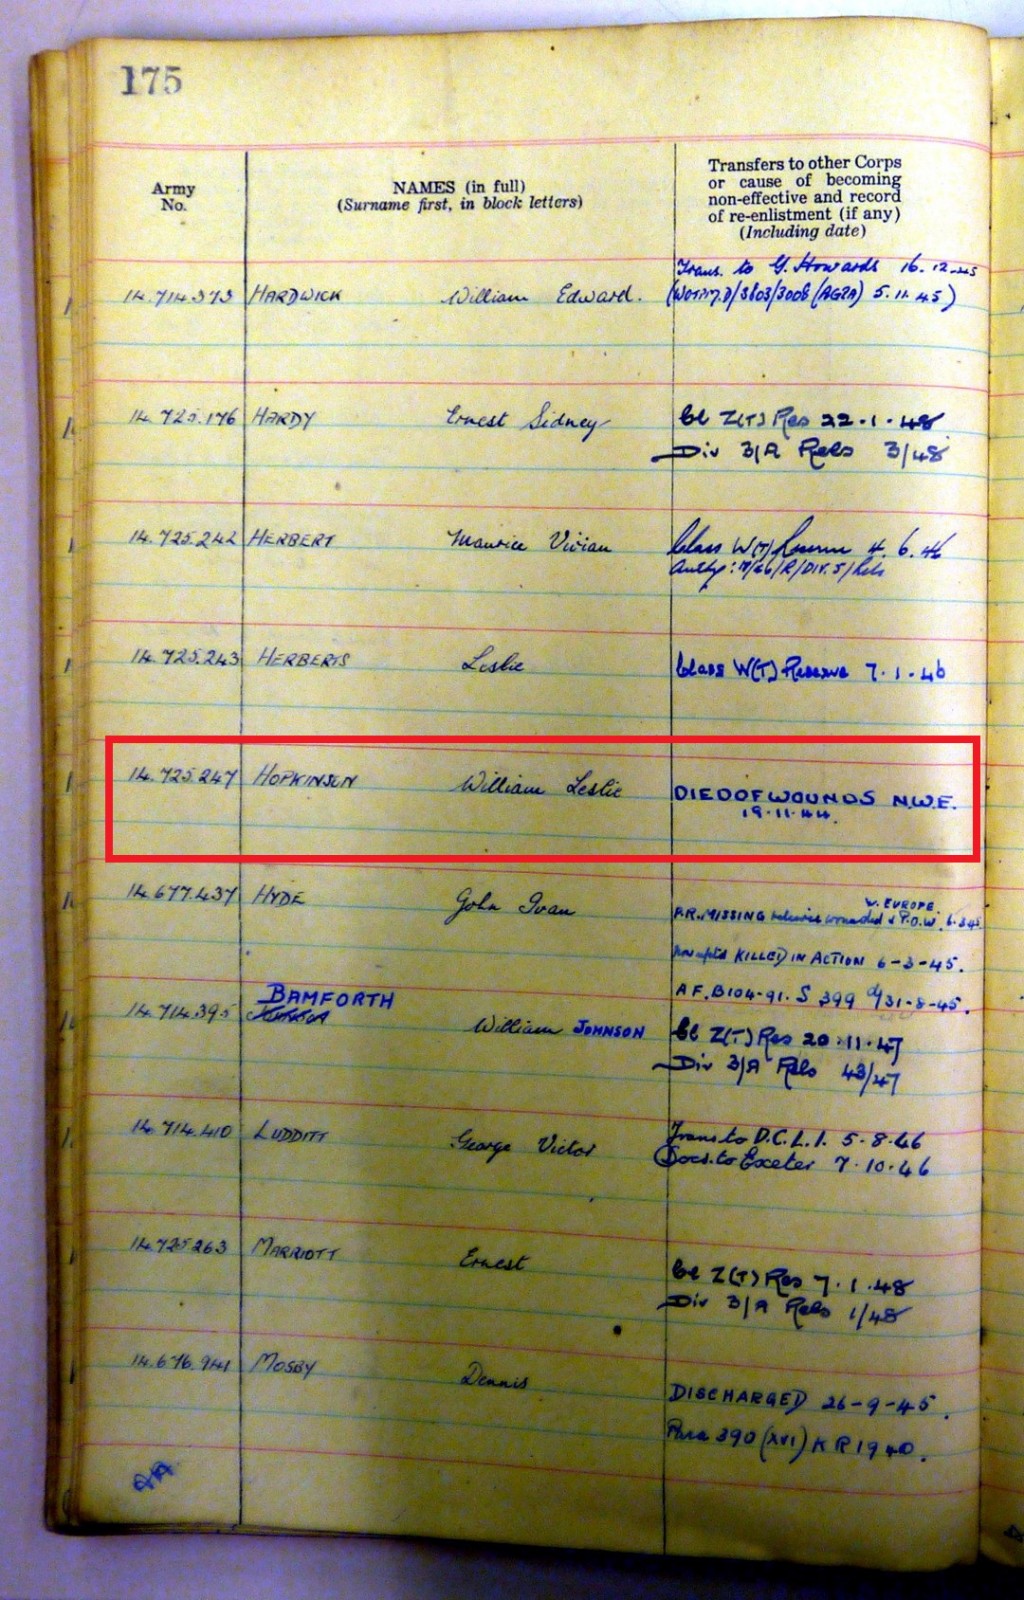 175
Army No.
NAMES (in full)
(Surname first, in block letters)
Transfers to other Corps
or cause of becoming
non-effective and record
of re-enlistment (if any)
(Including date)
Trans. to G. Howards 16.12.45
14.714.373 HARDWICK William Edward. 5.11.45)
14.725.176 HARDY Ernest Sidney Cl Z(T) Res 22.1.48
Div 3/A Rels 3/48
14.725.242 HERBERT Maurice Vivian Class W(T) Reserve 4.6.46
14.725.243 HERBERTS Leslie Class W(T) Reserve 7.1.46
14.725.247 HOPKINSON William Leslie DIED OF WOUNDS N.W.E.
19.11.44.
14.677.437 HYDE John Ivan
W. EUROPE
MISSING believed wounded & P.O.W.
KILLED IN ACTION 6-3-45.
A.F.B104-91. S 399 d/31-8-45.
BAMFORTH
14.714.395 William JOHNSON Cl Z(T) Res 20.11.47
Div 3/A Rels 43/47
14.714.410 LUDDITT George Victor Trans. to D.C.L.I. 5-8-46
Docs. to Exeter 7.10.46
14.725.263 MARRIOTT Ernest Cl Z(T) Res 7.1.48
Div 3/A Rels 1/48
14.676.941 MOSBY Dennis DISCHARGED 26-9-45.
Para 390 (XVI) K R 1940.